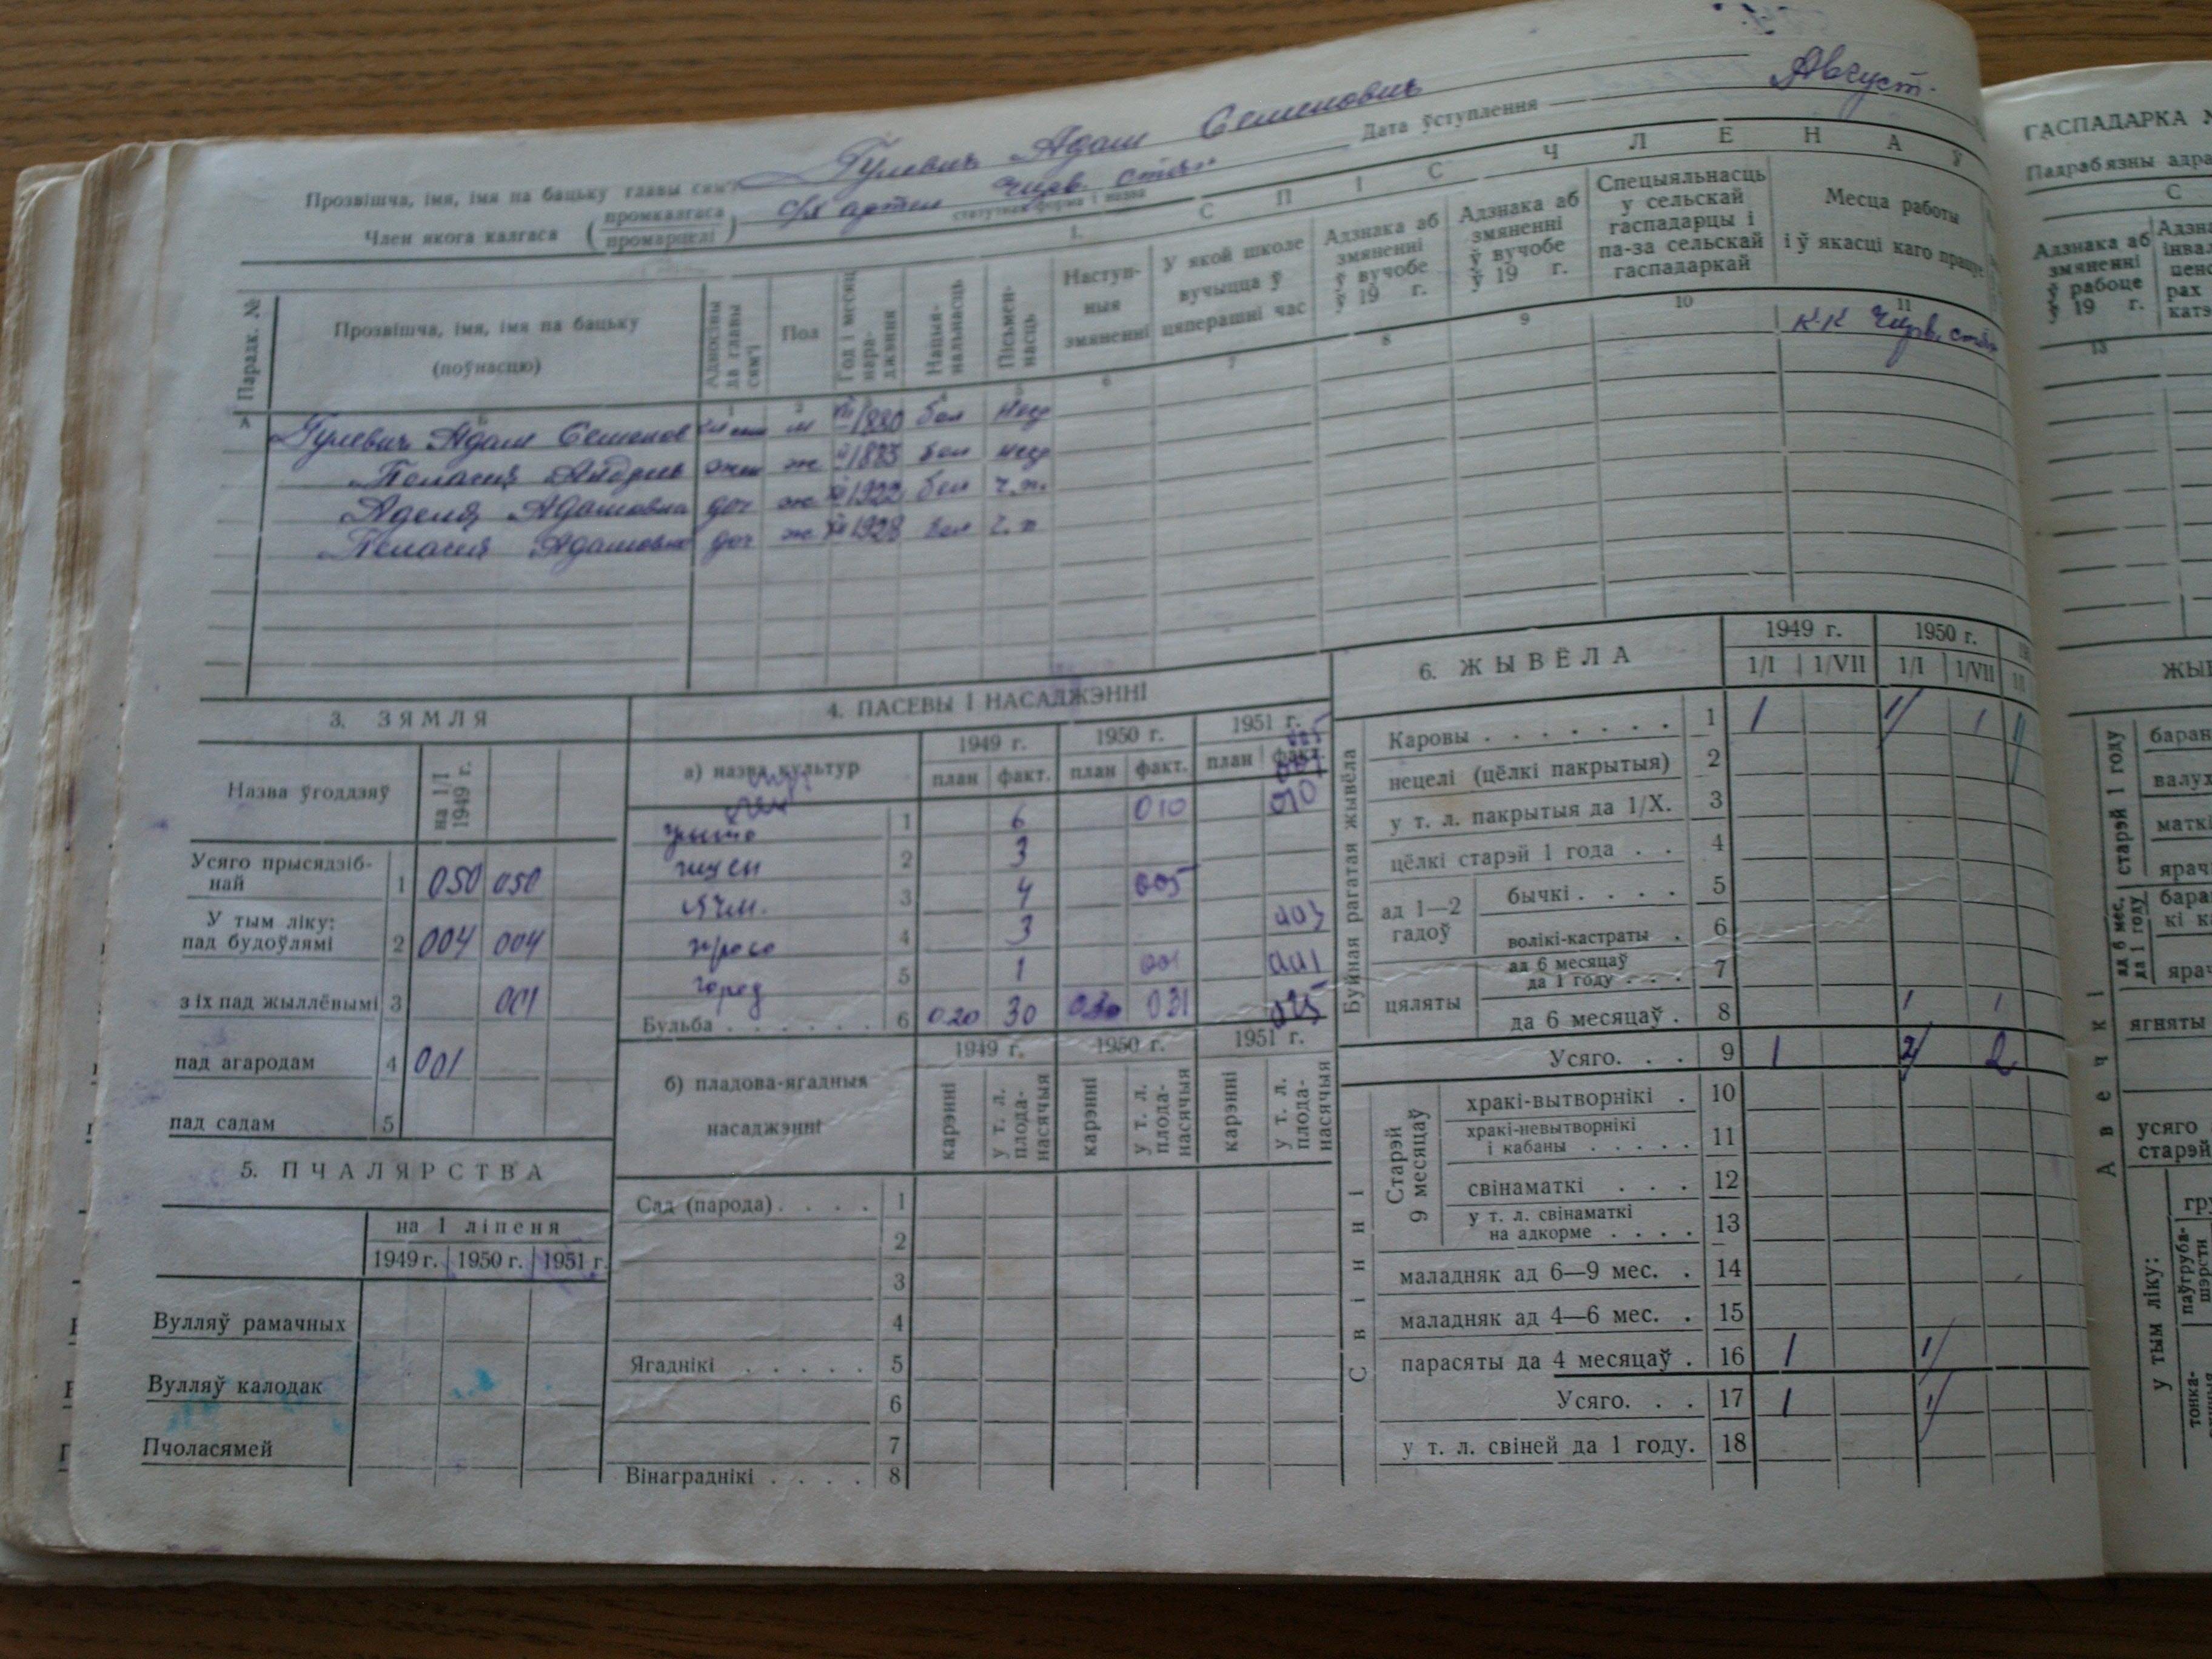 Прозвішча, імя, імя па бацьку главы сям'і Гулевич Адам Семенович
Член якога калгаса (промкалгаса промарцелі) с/х артел Чирв. сцяг
статутная форма і назва
Дата ўступлення Август.
1. СПІС ЧЛЕНАЎ
Парадк. №
Прозвішча, імя, імя па бацьку (поўнасцю)
Адносіны да главы сям'і
Пол
Год і месяц нараджэння
Нацыянальнасць
Пісьменнасць
Наступныя змяненні
У якой школе вучыцца ў цяперашні час
Адзнака аб змяненні ў вучобе ў 19 г.
Адзнака аб змяненні ў вучобе ў 19 г.
Спецыяльнасць у сельскай гаспадарцы і па-за сельскай гаспадаркай
Месца работы і ў якасці каго працуе
А 6 7 8 9 10 11
Гулевич Адам Семенов м 1880 бел негр К-К Чирв. сцяг
Пелагия Андрев жен ж 1883 бел негр
Аделя Адамовна доч ж 1922 бел ч.п.
Пелагия Адамовна доч ж 1928 бел ч.п
3. ЗЯМЛЯ
Назва ўгоддзяў на 1/I 1949 г.
Усяго прысядзібнай 1 050 050
У тым ліку: пад будоўлямі 2 004 004
з іх пад жыллёвымі 3 001
пад агародам 4 001
пад садам 5
5. ПЧАЛЯРСТВА
на 1 ліпеня
1949 г. 1950 г. 1951 г.
Вулляў рамачных
Вулляў калодак
Пчоласямей
4. ПАСЕВЫ І НАСАДЖЭННІ
а) назва культур 1949 г. 1950 г. 1951 г.
план факт. план факт. план факт.
1 6 010 010
2 3
ячм. 3 4 005
просо 4 3 003
город 5 1 001 001
Бульба 6 020 30 031
б) пладова-ягадныя насаджэнні
1949 г. 1950 г. 1951 г.
карэнні у т. л. плоданасячыя карэнні у т. л. плоданасячыя карэнні у т. л. плоданасячыя
Сад (парода) 1
2
3
4
Ягаднікі 5
6
7
Вінаграднікі 8
6. ЖЫВЁЛА
1949 г. 1950 г.
1/I 1/VII 1/I 1/VII
Буйная рагатая жывёла
Каровы 1 1 1 1
нецелі (цёлкі пакрытыя) 2
у т. л. пакрытыя да 1/X. 3
цёлкі старэй 1 года 4
ад 1—2 гадоў
бычкі 5
волікі-кастраты 6
цяляты
ад 6 месяцаў да 1 году 7
да 6 месяцаў 8 1 1
Усяго 9 1 2 2
Свінні
Старэй 9 месяцаў
хракі-вытворнікі 10
хракі-невытворнікі і кабаны 11
свінаматкі 12
у т. л. свінаматкі на адкорме 13
маладняк ад 6—9 мес. 14
маладняк ад 4—6 мес. 15
парасяты да 4 месяцаў 16 1 1
Усяго 17 1 1
у т. л. свіней да 1 году. 18
ГАСПАДАРКА
Падрабязны
Адзнака аб змяненні ў рабоце ў 19 г.
13
Авечкі
старэй 1 году
ад 6 мес. да 1 году
ягняты
усяго
старэй
у тым ліку: